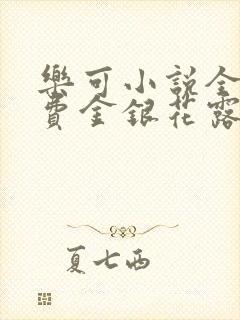 樂可小說全
費金銀花露
夏七西